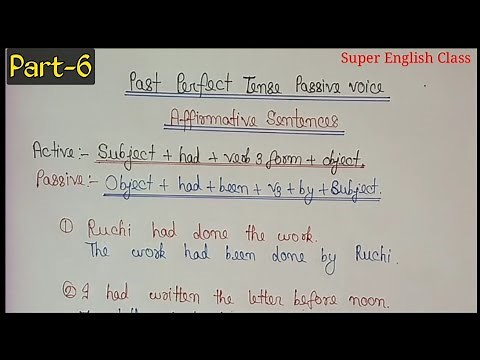 Part-6
Super English Class
Past Perfect Tense Passive voice
Affirmative Sentences
Active:- Subject + had + verb 3 form + object.
Passive:- Object + had + been + v3 + by + Subject.
① Ruchi had done the work.
The work had been done by Ruchi.
② I had written the letter before noon.